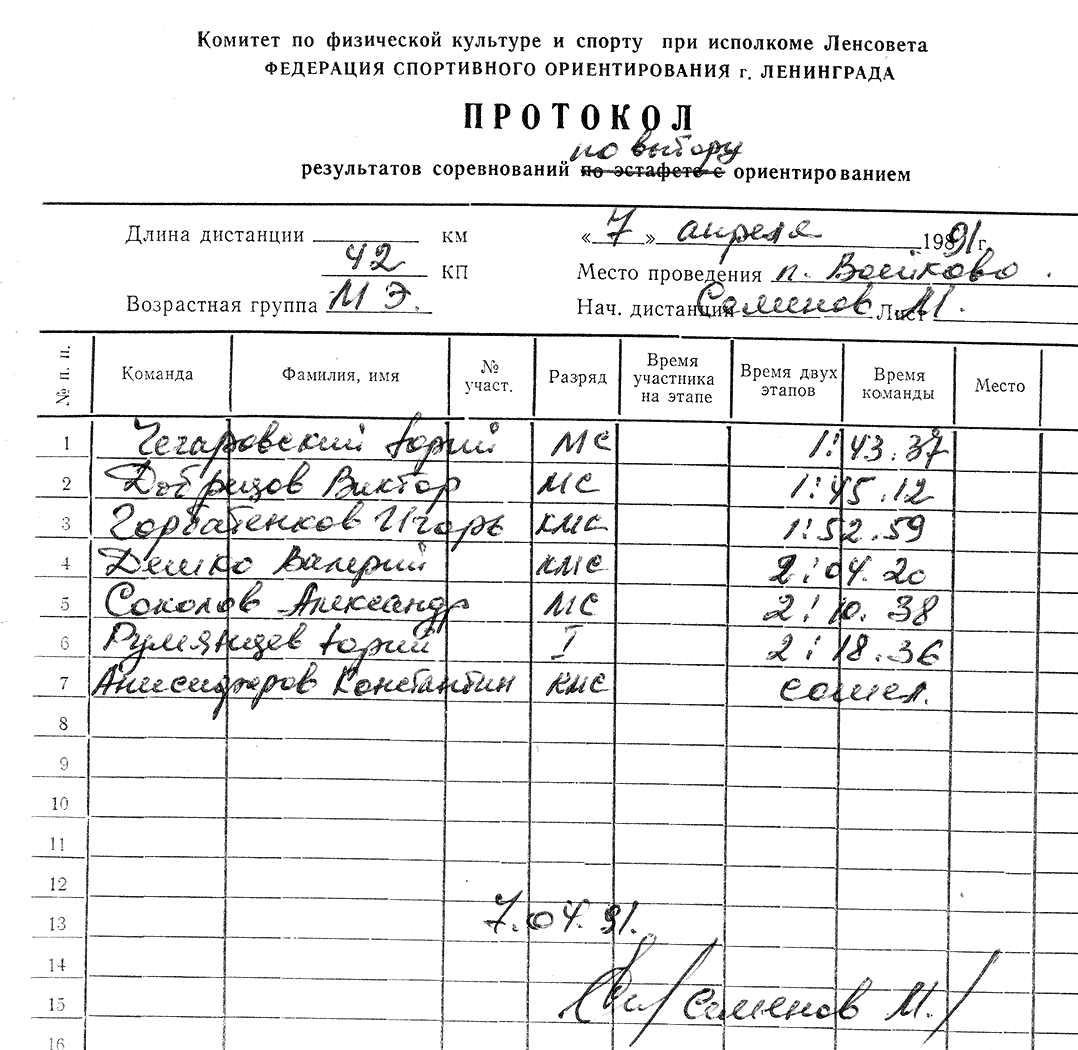 Комитет по физической культуре и спорту при исполкоме Ленсовета
ФЕДЕРАЦИЯ СПОРТИВНОГО ОРИЕНТИРОВАНИЯ г. ЛЕНИНГРАДА
ПРОТОКОЛ
по выбору
результатов соревнований по эстафете с ориентированием
Длина дистанции км « 7 » апреля 1991 г.
42 КП Место проведения п. Воейково.
Возрастная группа МЭ. Нач. дистанции Семенов М. Лист
№ п. п. Команда Фамилия, имя № участ. Разряд Время участника на этапе Время двух этапов Время команды Место
1 Чегаровский Юрий МС 1:43.37
2 Добрецов Виктор МС 1:45.12
3 Горбатенков Игорь КМС 1:52.59
4 Демко Валерий КМС 2:04.20
5 Соколов Александр МС 2:10.38
6 Румянцев Юрий I 2:18.36
7 Анисифоров Константин КМС сошел.
8
9
10
11
12
13 7.04.91.
14
15 /Семенов М./
16